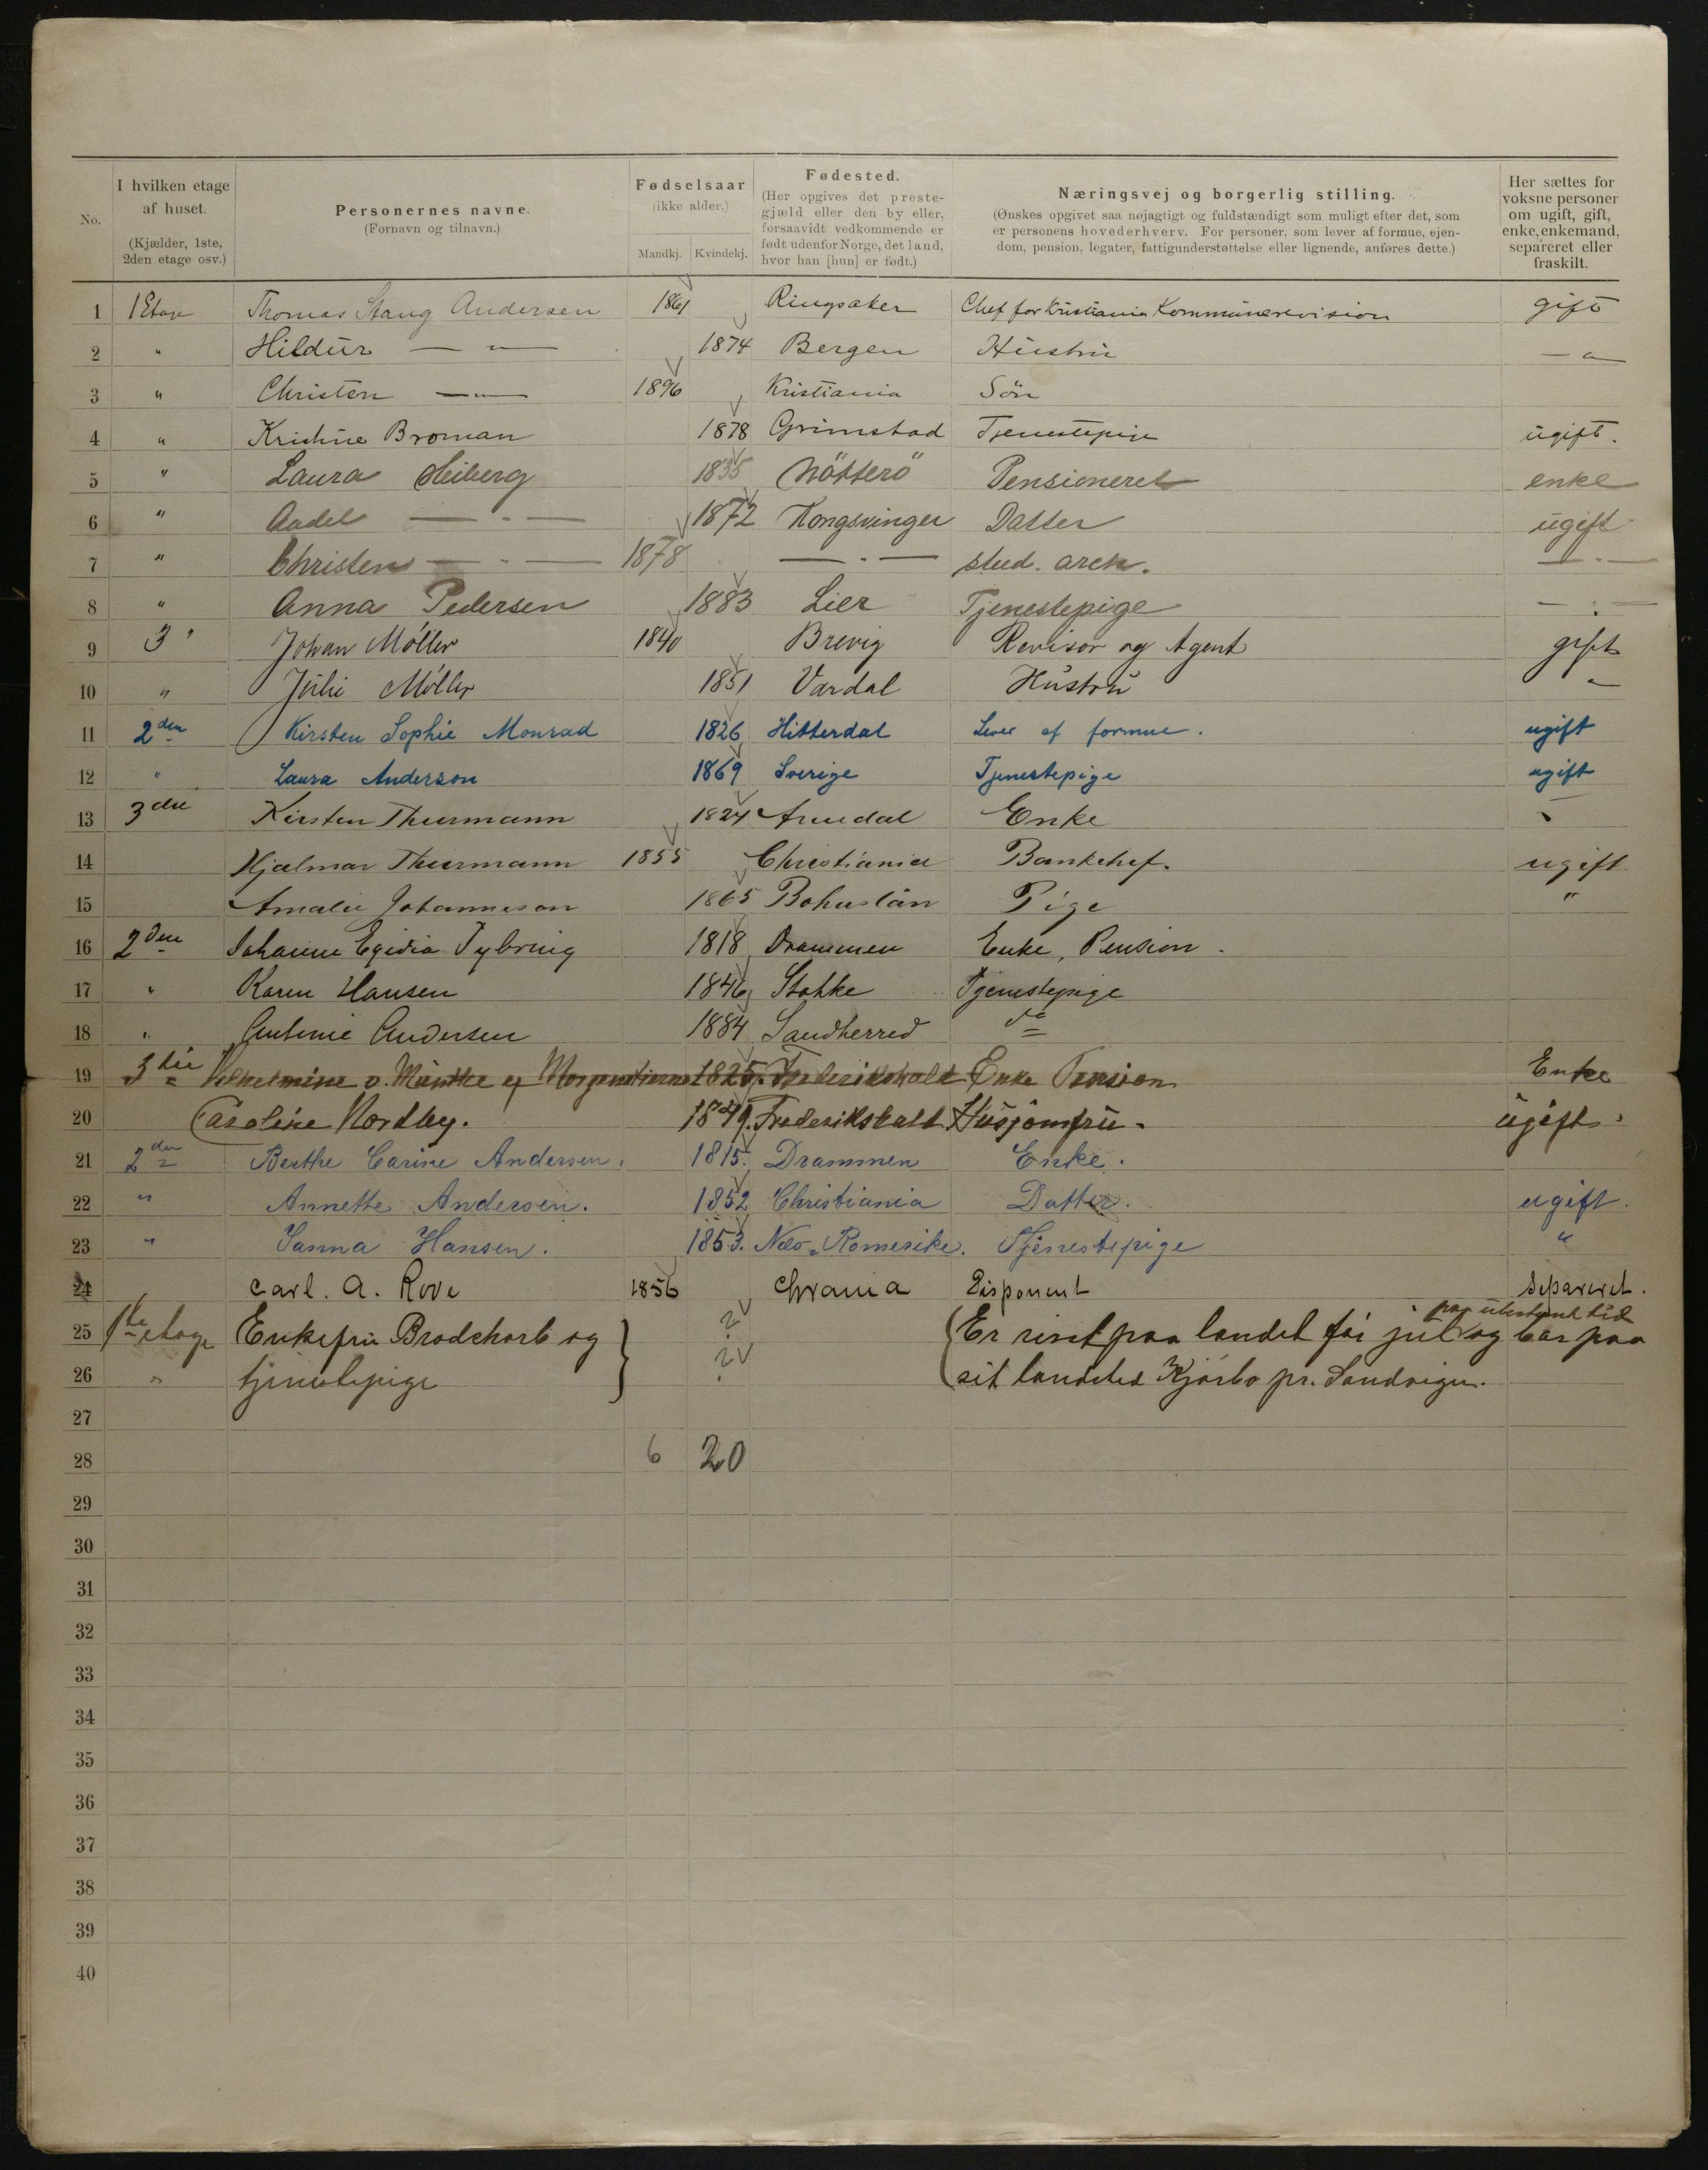 No.
I hvilken etage af huset. (Kjælder, 1ste, 2den etage osv.)
Personernes navne. (Fornavn og tilnavn.)
Fødselsaar (ikke alder.) Mandkj. Kvindekj.
Fødested. (Her opgives det prestegjæld eller den by eller, forsaavidt vedkommende er født udenfor Norge, det land, hvor han [hun] er født.)
Næringsvej og borgerlig stilling. (Ønskes opgivet saa nøjagtigt og fuldstændigt som muligt efter det, som er personens hovederhverv. For personer, som lever af formue, ejendom, pension, legater, fattigunderstøttelse eller lignende, anføres dette.)
Her sættes for voksne personer om ugift, gift, enke, enkemand, separeret eller fraskilt.
1 1 Etage Thomas Stang Andersen 1861 Ringsaker Chef for Kristiania Kommunerevision gift
2 " Hildur — " — 1874 Bergen Hustru — " —
3 " Christen — " — 1896 Kristiania Sön
4 " Kristine Broman 1878 Grimstad Tjenestepige ugift.
5 " Laura Heiberg 1835 Nötterö Pensioneret enke
6 " Aadel — " — 1872 Kongsvinger Datter ugift
7 " Christen — " — 1878 — " — stud. arch. — " —
8 " Anna Pedersen 1883 Lier Tjenestepige — " —
9 3 " Johan Møller 1840 Brevig Revisor og Agent gift
10 " Julie Møller 1851 Vardal Hustru "
11 2den Kirsten Sophie Monrad 1826 Hitterdal Lever af formue. ugift
12 " Laura Anderson 1869 Sverige Tjenestepige ugift
13 3die Kirsten Thurmann 1824 Arendal Enke
14 Hjalmar Thurmann 1855 Christiania Bankchef. ugift
15 Amalie Johanneson 1865 Bohuslän Pige "
16 2den Johanne Egidia Tybring 1818 Drammen Enke, Pension.
17 " Karen Hansen 1846 Stokke Tjenestepige
18 " Antonie Andersen 1884 Sandherred do
19 3die Vilhelmine v. Munthe af Morgenstierne 1825. Frederikshald Enke Pension Enke
20 Caroline Nordby. 1849. Frederikshald Husjomfru. ugift.
21 2den Berthe Carine Andersen. 1815. Drammen Enke.
22 " Annette Andersen. 1852 Christiania Datter. ugift.
23 " Sanna Hansen. 1853. Næs. Romerike. Tjenestepige "
24 Carl. A. Rove 1856 Chrania Disponent Separeret.
25 1ste etage Enkefru Brodchorb og ? Er reist paa landet før jul paa ubestemt tid og bor paa
26 " tjenestepige ? sit landsted Kjørbo pr. Sandvigen.
27
28 6 20
29
30
31
32
33
34
35
36
37
38
39
40